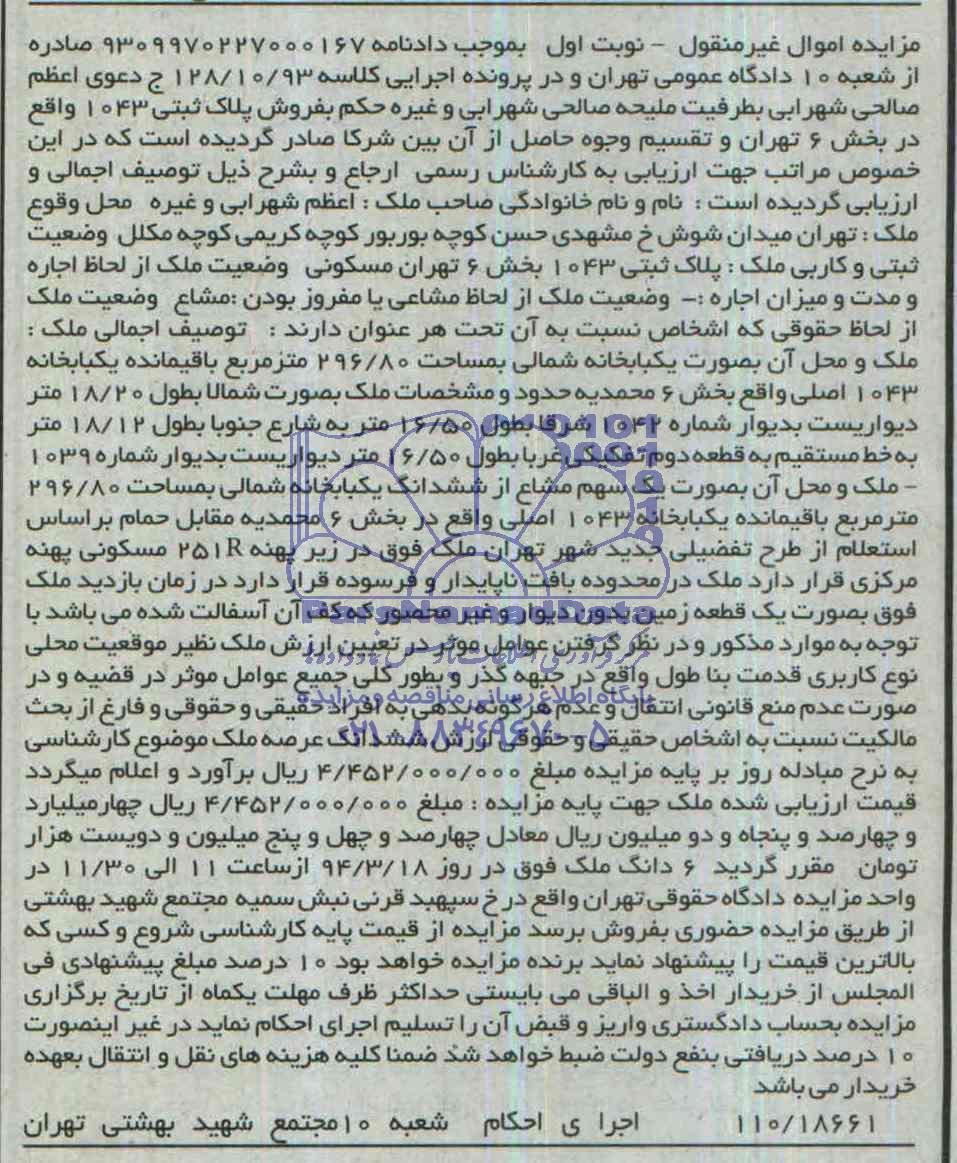 مزایده اموال غیرمنقول - نوبت اول بموجب دادنامه ۹۳۰۹۹۷۰۲۲۷۰۰۰۱۶۷ صادره
از شعبه ۱۰ دادگاه عمومی تهران و در پرونده اجرایی کلاسه ۱۲۸/۱۰/۹۳ ج دعوی اعظم
صالحی شهرابی بطرفیت ملیحه صالحی شهرابی و غیره حکم بفروش پلاک ثبتی ۱۰۴۳ واقع
در بخش ۶ تهران و تقسیم وجوه حاصل از آن بین شرکا صادر گردیده است که در این
خصوص مراتب جهت ارزیابی به کارشناس رسمی ارجاع و بشرح ذیل توصیف اجمالی و
ارزیابی گردیده است : نام و نام خانوادگی صاحب ملک : اعظم شهرابی و غیره محل وقوع
ملک : تهران میدان شوش خ مشهدی حسن کوچه بوربور کوچه کریمی کوچه مکلل وضعیت
ثبتی و کاربی ملک : پلاک ثبتی ۱۰۴۳ بخش ۶ تهران مسکونی وضعیت ملک از لحاظ اجاره
و مدت و میزان اجاره :- وضعیت ملک از لحاظ مشاعی یا مفروز بودن :مشاع وضعیت ملک
از لحاظ حقوقی که اشخاص نسبت به آن تحت هر عنوان دارند : توصیف اجمالی ملک :
ملک و محل آن بصورت یکبابخانه شمالی بمساحت ۲۹۶/۸۰ مترمربع باقیمانده یکبابخانه
۱۰۴۳ اصلی واقع بخش ۶ محمدیه حدود و مشخصات ملک بصورت شمالا بطول ۱۸/۲۰ متر
دیواریست بدیوار شماره ۱۰۴۲ شرقا بطول ۱۶/۵۰ متر به شارع جنوبا بطول ۱۸/۱۲ متر
به خط مستقیم به قطعه دوم تفکیکی غربا بطول ۱۶/۵۰ متر دیواریست بدیوار شماره ۱۰۳۹
- ملک و محل آن بصورت یک سهم مشاع از ششدانگ یکبابخانه شمالی بمساحت ۲۹۶/۸۰
مترمربع باقیمانده یکبابخانه ۱۰۴۳ اصلی واقع در بخش ۶ محمدیه مقابل حمام براساس
استعلام از طرح تفضیلی جدید شهر تهران ملک فوق در زیر پهنه R۲۵۱ مسکونی پهنه
مرکزی قرار دارد ملک در محدوده بافت ناپایدار و فرسوده قرار دارد در زمان بازدید ملک
فوق بصورت یک قطعه زمین بدون دیوار و غیر محصور که کف آن آسفالت شده می باشد با
توجه به موارد مذکور و در نظر گرفتن عوامل موثر در تعیین ارزش ملک نظیر موقعیت محلی
نوع کاربری قدمت بنا طول واقع در جبهه گذر و بطور کلی جمیع عوامل موثر در قضیه و در
صورت عدم منع قانونی انتقال و عدم هرگونه بدهی به افراد حقیقی و حقوقی و فارغ از بحث
مالکیت نسبت به اشخاص حقیقی و حقوقی ارزش ششدانگ عرصه ملک موضوع کارشناسی
به نرح مبادله روز بر پایه مزایده مبلغ ۴/۴۵۲/۰۰۰/۰۰۰ ریال برآورد و اعلام میگردد
قیمت ارزیابی شده ملک جهت پایه مزایده : مبلغ ۴/۴۵۲/۰۰۰/۰۰۰ ریال چهارمیلیارد
و چهارصد و پنجاه و دو میلیون ریال معادل چهارصد و چهل و پنج میلیون و دویست هزار
تومان مقرر گردید ۶ دانگ ملک فوق در روز ۹۴/۳/۱۸ ازساعت ۱۱ الی ۱۱/۳۰ در
واحد مزایده دادگاه حقوقی تهران واقع در خ سپهبد قرنی نبش سمیه مجتمع شهید بهشتی
از طریق مزایده حضوری بفروش برسد مزایده از قیمت پایه کارشناسی شروع و کسی که
بالاترین قیمت را پیشنهاد نماید برنده مزایده خواهد بود ۱۰ درصد مبلغ پیشنهادی فی
المجلس از خریدار اخذ و الباقی می بایستی حداکثر ظرف مهلت یکماه از تاریخ برگزاری
مزایده بحساب دادگستری واریز و قبض آن را تسلیم اجرای احکام نماید در غیر اینصورت
۱۰ درصد دریافتی بنفع دولت ضبط خواهد شد ضمنا کلیه هزینه های نقل و انتقال بعهده
خریدار می باشد
۱۱۰/۱۸۶۶۱ اجرا ی احکام شعبه ۱۰مجتمع شهید بهشتی تهران
ParsNamadData
پایگاه اطلاع رسانی مناقصه و مزایده
۰۲۱-۸۸۳۴۹۶۷۰-۵